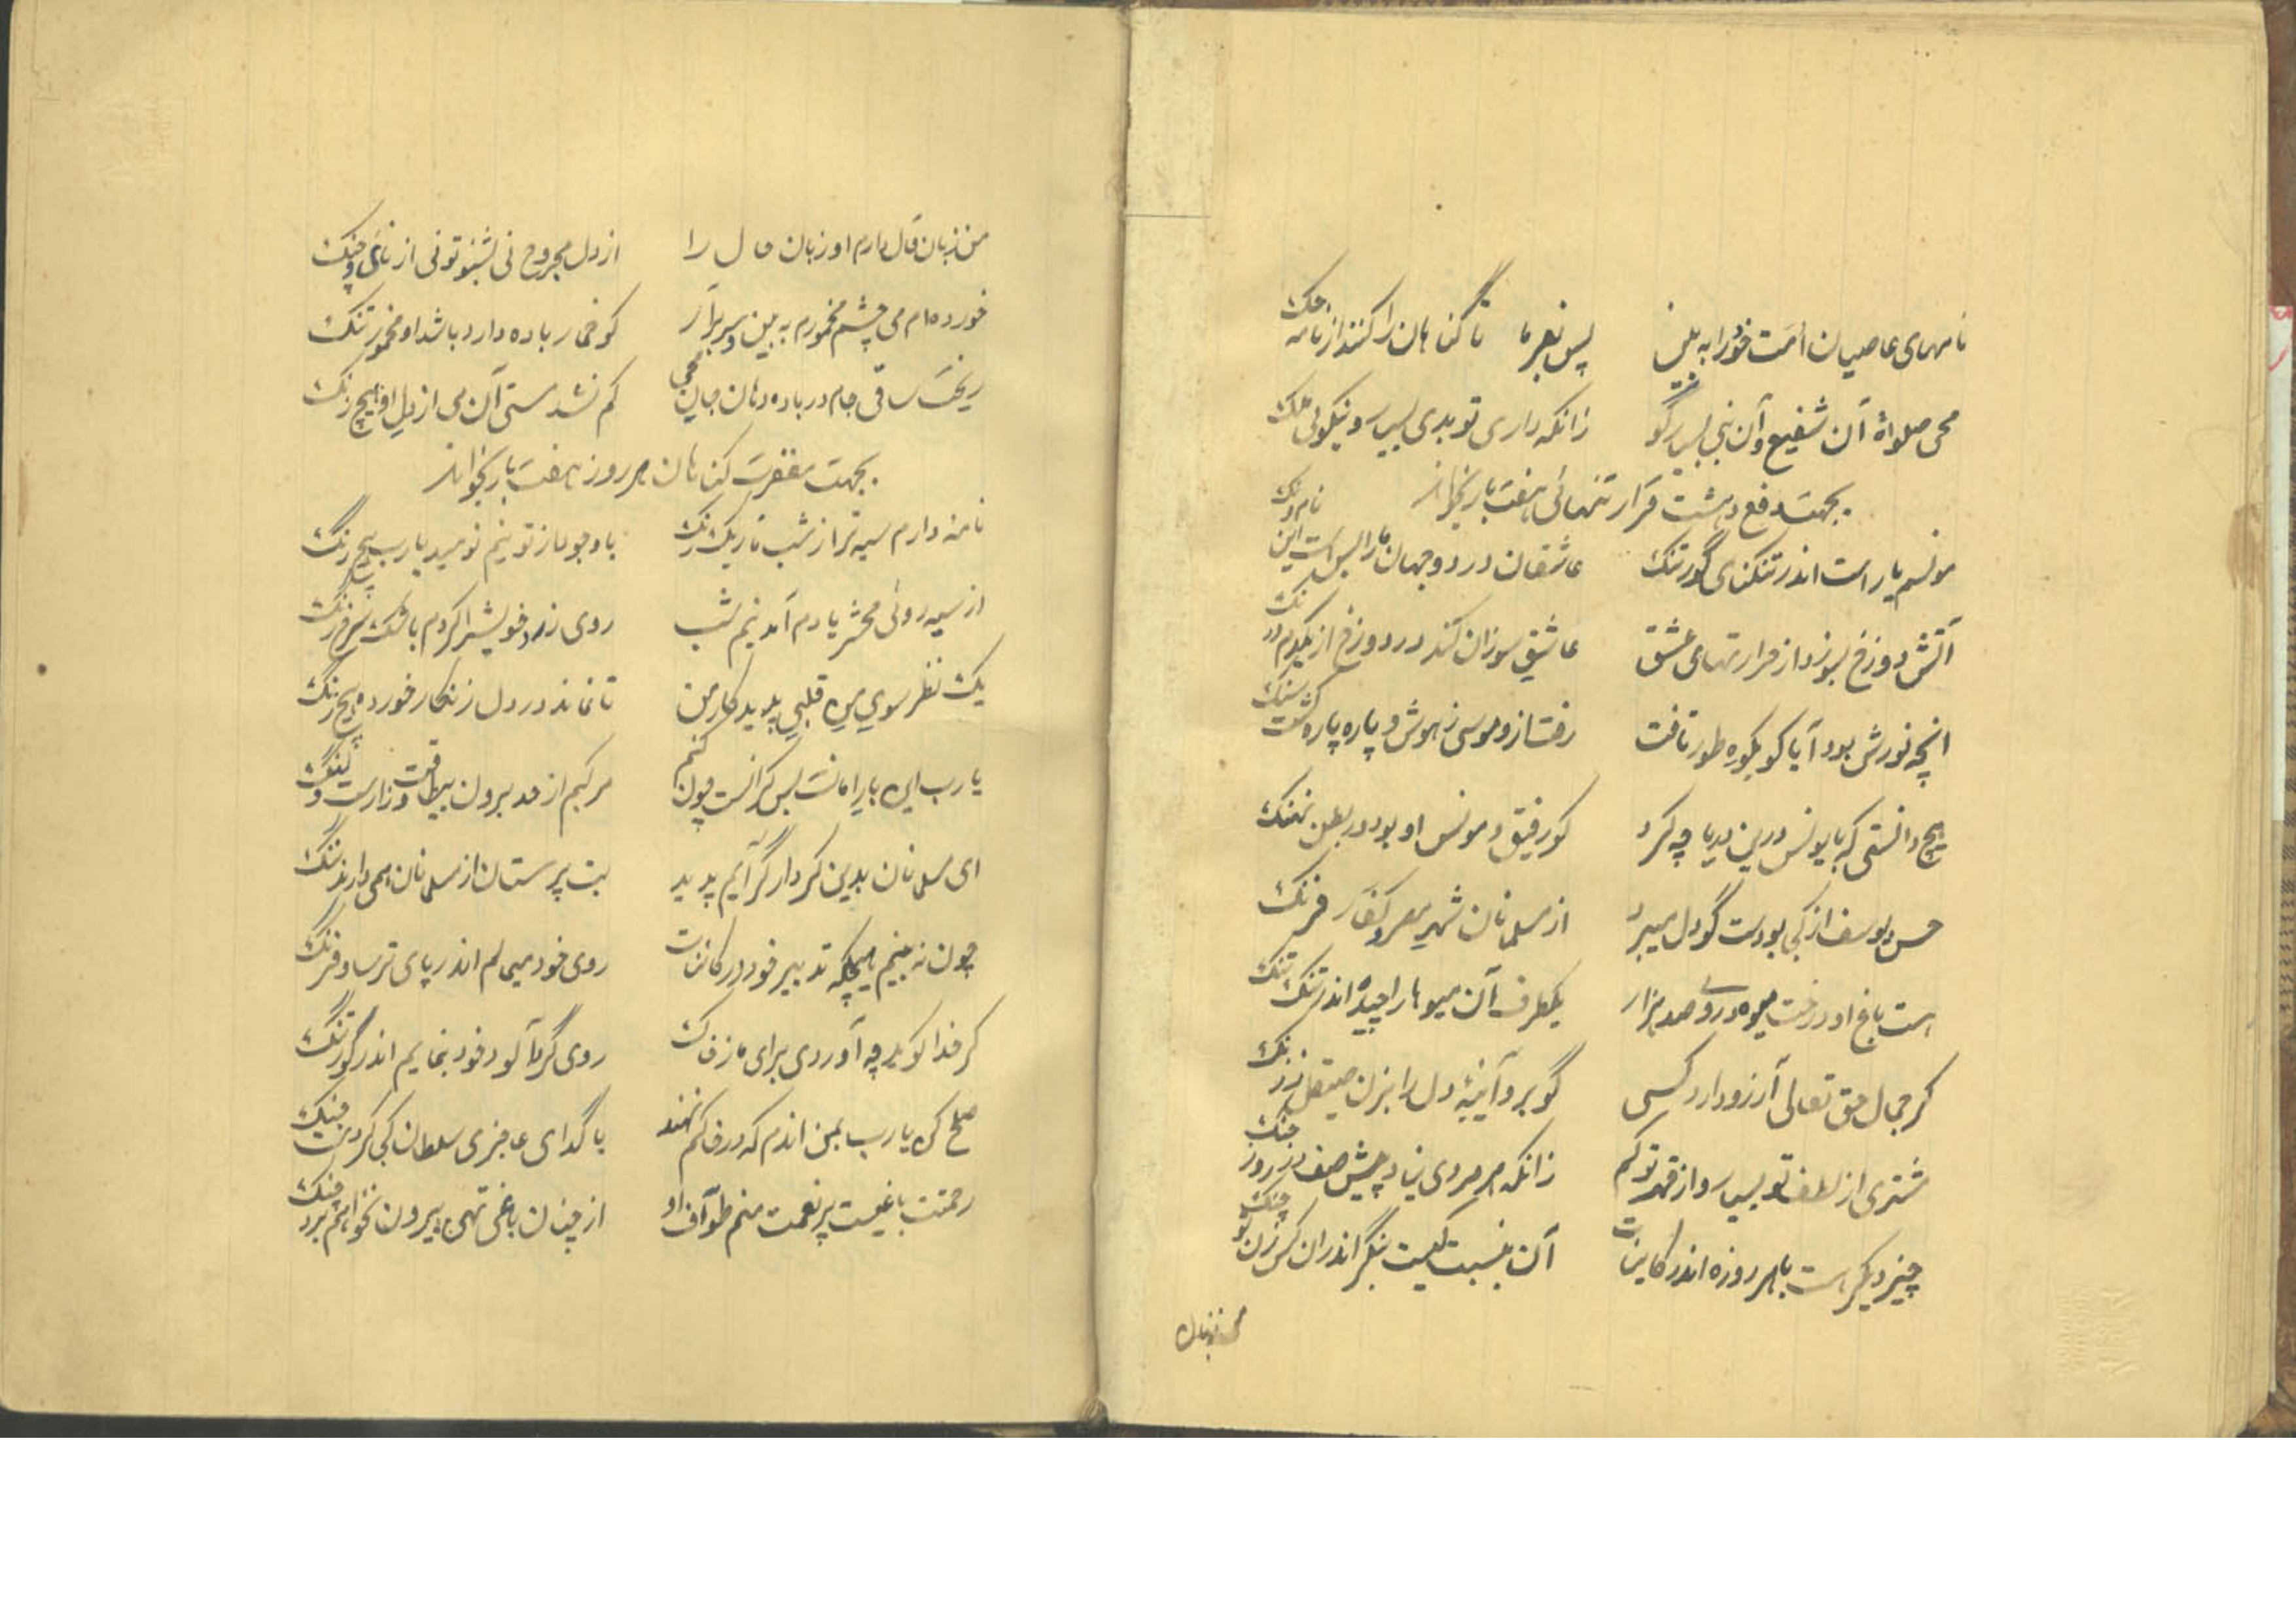 نامهای عاصیان امت خود را به بین پس بفرما تا کناهان را کنند از نامه حک
محی صلواة آن شفیع و آن نبی بسیار گو زانکه داری تو بدی بسیار و نیکوئی
بجهت دفع دهشت قرار تنهائی هفت بار بخواند
مونسم یار است اندر تنکنای گور تنک عاشقان در دو جهان ما را بس است این نام و ننک
آتش دوزخ بسوزد از حرارتهای عشق عاشق سوزان کند در دوزخ از یکدم
انچه نورش بود آیا کو بکوه طور تافت رفت ازو موسی ز هوش و پاره پاره کشت سنک
هیچ دانستی که با یونس درین دریا چه کرد کو رفیق و مونس او بود در بطن نهنک
حسن یوسف از کی بودست گو دل میبرد از مسلمانان شهر مصر و کفار فرنک
است باغ او درخت میوه در وی صد هزار یکطرف آن میوها را چیده اند تنک تنک
کر جمال حق تعالی آرزو دارد کسی گو برو آئینه دل را بزن صیقل ز زنک
شتری از لطف تو بسیار و از قهر تو کم زانکه هر مردی نیاید پیش صف در روز جنک
چیز دیکر است با هر روزه اندر کاینات آن بنسبت کیست بنگر اندران کس زن تو چنک
من زبان قال دارم او زبان حال را از دل مجروح نی بشنو تو نی از نای و چنک
خورده ام می چشم مخمورم به بین و سر برآر کو خمار باده دارد باشد او مخمور تنک
ریخت ساقی جام در باده دهان جان محی کم نشد مستی آن می از دل او هیچ رنک
بجهت مغفرت کناهان هر روز هفت بار بخواند
نامه دارم سیه تر از شب تاریک رنک با وجود از تو نیم نومید یارب هیچ رنگ
از سیه روئی محشر یادم آمد نیم شب روی زرد خویش را کردم باشک سرخ رنک
یک نظر سوی من قلبی پدید کار من تا نماند در دل زنکار خورده هیچ رنک
یارب این بار امانت بس کرانست چون کنم مرکبم از حد برون بیطاقت و زارست و لنک
ای مسلمانان بدین کردار گر آیم پدید بت پرستان از مسلمانان همی دارند ننک
چون نه بینم هیچکه تدبیر خود در کاینات روی خود میمالم اندر پای ترسا و فرنک
کر خدا کوید چه آوردی برای ما ز خاک روی گرد آلود خود بنمایم اندر گور تنک
صلح کن یارب بمن اندم که در خاکم نهند با گدای عاجزی سلطان کی کردست جنک
رحمتت باغیست پر نعمت منم طواف او از چنان باغی تهی بیرون نخواهم برد چنک